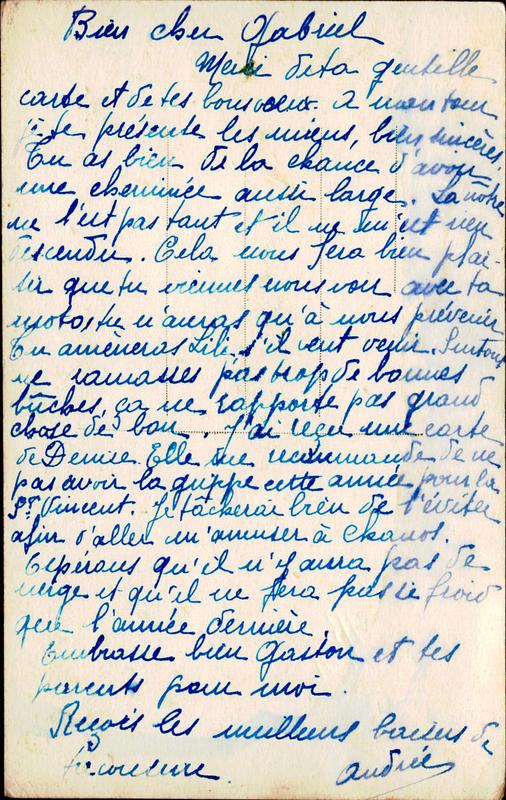 Bien cher Gabriel
Merci de ta gentille
carte et de tes bons voeux. A mon tour
je te présente les miens, bien sincères.
Tu as bien de la chance d'avoir
une cheminée aussi large. La nôtre
ne l'est pas tant et il ne m'est rien
descendu. Cela nous fera bien plai-
sir que tu viennes nous voir avec ta
moto, tu n'auras qu'à nous prévenir
Tu amèneras Lili, s'il veut venir. Surtout
ne ramasses pas trop de bonnes
bûches, ça ne rapporte pas grand
chose de bon. J'ai reçu une carte
de Denise. Elle me recommande de ne
pas avoir la grippe cette année pour la
St Vincent. Je tâcherai bien de l'éviter
afin d'aller m'amuser à Chanos.
Espérons qu'il n'y aura pas de
neige et qu'il ne fera pas si froid
que l'année dernière.
Embrasse bien Gaston et tes
parents pour moi.
Reçois les meilleurs baisers de
Andrée